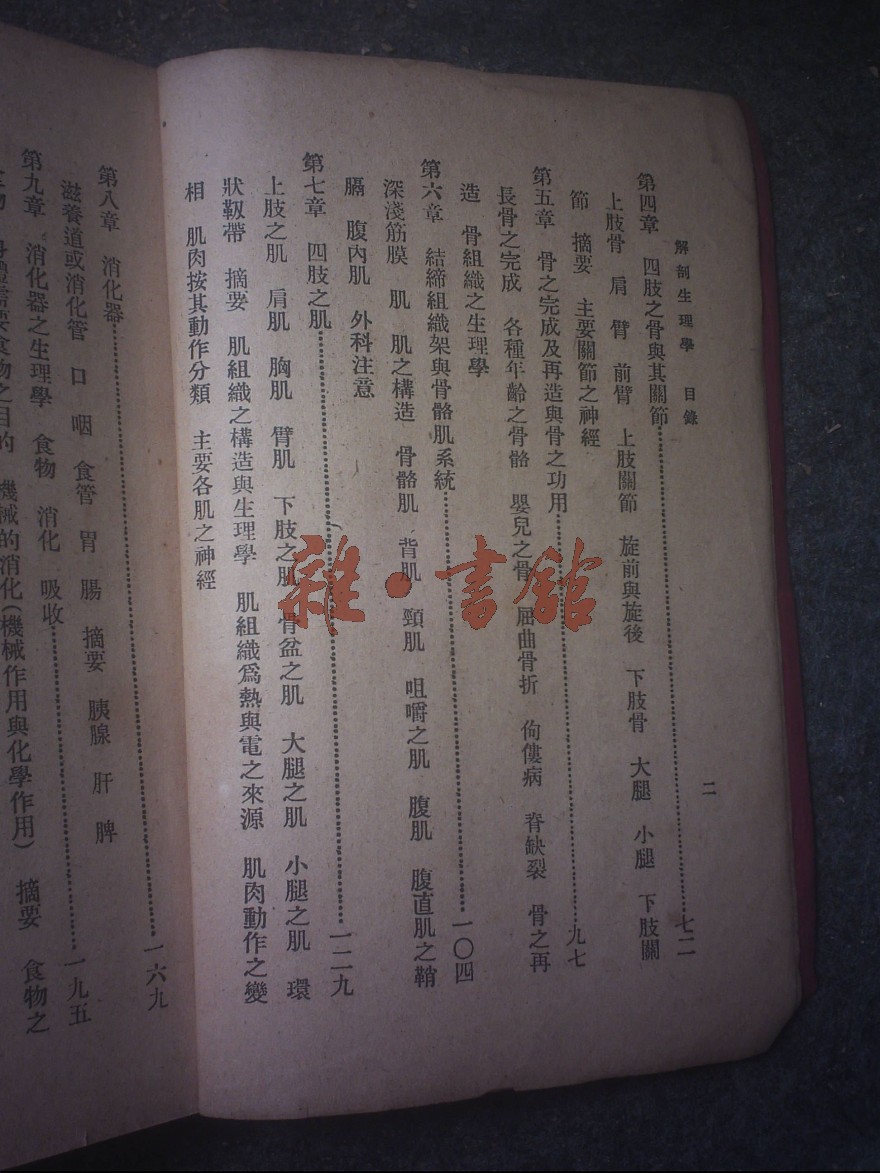 解剖生理學　目錄
二
第四章　四肢之骨與其關節……七二
上肢骨　肩　臂　前臂　上肢關節　旋前與旋後　下肢骨　大腿　小腿　下肢關
節　摘要　主要關節之神經
第五章　骨之完成及再造與骨之功用……九七
長骨之完成　各種年齡之骨骼　嬰兒之骨　屈曲骨折　佝僂病　脊缺裂　骨之再
造　骨組織之生理學
第六章　結締組織架與骨骼肌系統……一〇四
深淺筋膜　肌　肌之構造　骨骼肌　背肌　頸肌　咀嚼之肌　腹肌　腹直肌之鞘
膈　腹內肌　外科注意
第七章　四肢之肌……一二九
上肢之肌　肩肌　胸肌　臂肌　下肢之肌　骨盆之肌　大腿之肌　小腿之肌　環
狀靱帶　摘要　肌組織之構造與生理學　肌組織爲熱與電之來源　肌肉動作之變
相　肌肉按其動作分類　主要各肌之神經
第八章　消化器……一六九
滋養道或消化管　口　咽　食管　胃　腸　摘要　胰腺　肝　脾
第九章　消化器之生理學　食物　消化　吸收……一九五
食物之目的　機械的消化(機械作用與化學作用)　摘要　食物之
雜·書館